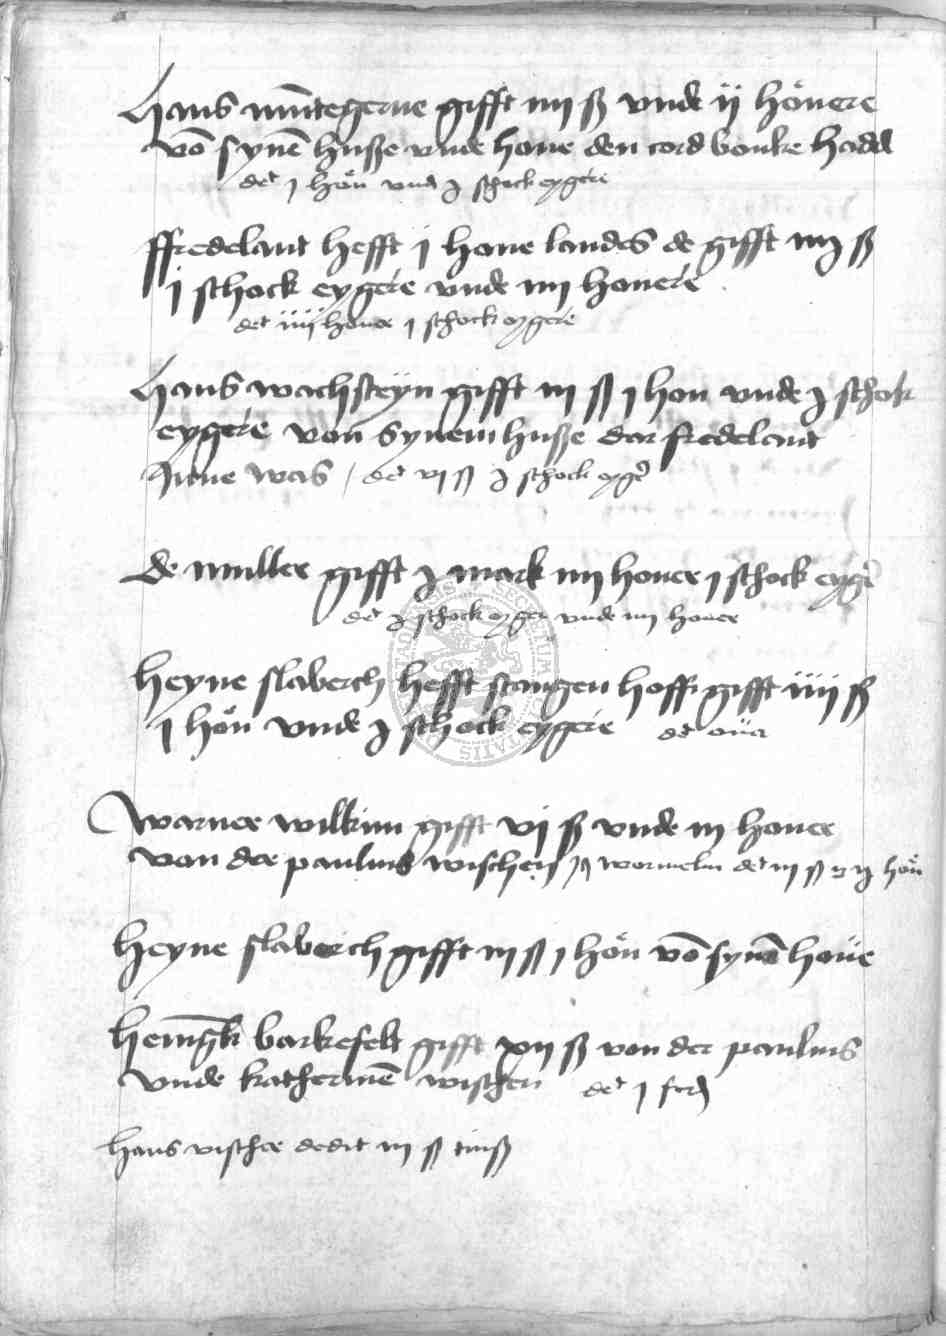 Hans mu̅tegerne gifft iiij ß vnde ij hönere
vō synē husze vnde houe den cord bonke hadd
det j hön vnd j schock eygere
ffredelant hefft j houe landes de gifft iiij ß
j schock eygere vnde iiij honere
det iiij honer j schock eygere
Hans wachsteyn gifft iij ß j hon vnde j schok
eygere von synem husze dar fredelant
Inne was / det vj ß j schock eyg
de muller gifft j mark iiij honer j schock eyg
det j schock eyger vnde iiij honer
Heyne slaberch hefft stangen hoff gifft iiij ß
j hön vnde j schock eygere det oua
Warner wilkin gifft vj ß vnde iij honer
von der paulins wischen wormelin det iij ß ij hön
Heyne slaberch gifft iij ß j hön vō synē houe
Henīgk barkefelt gifft xij ß von der paulins
vnde katherinē wischen det j ferd
hans vischer dedit iij ß tinß
SECRETUM